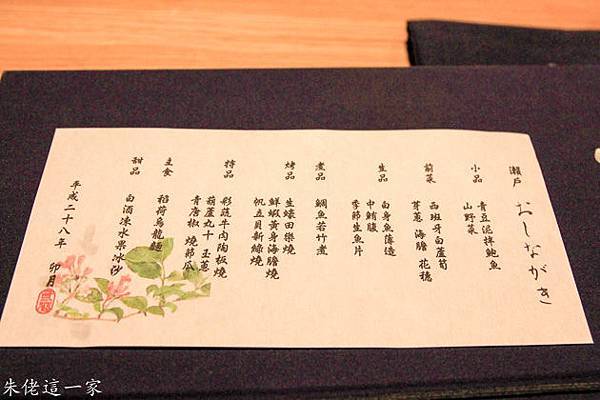 瀨戶 おしながき
小品 青豆泥拌鮑魚
山野菜
前菜 西班牙白蘆筍
芽蔥 海膽 花穗
生品 白身魚薄造
中鮪腹
季節生魚片
煮品 鯛魚若竹煮
烤品 生蠔田樂燒
鮮蝦黃身海膽燒
帆立貝新綠燒
特品 彩蔬牛肉陶板燒
葫蘆丸十 玉蔥
青唐椒 燒節瓜
主食 稻荷烏龍麵
甜品 白酒凍水果冰沙
平成二十八年 卯月
朱佬這一家